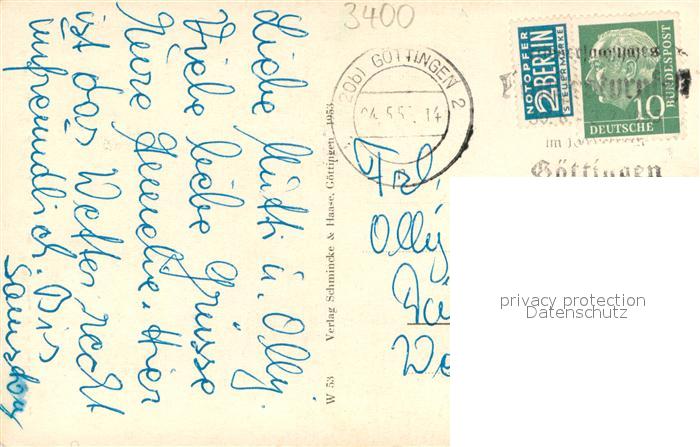 3400
Liebe Mutti u. Olly.
Viele liebe Grüsse
Eure Annelie. Hier
ist das Wetter recht
unfreundlich. Bis
Samstag
W 53 Verlag Schmincke & Haase, Göttingen 1953
(20b) GÖTTINGEN 2
NOTOPFER
2 BERLIN
STEUERMARKE
DEUTSCHE
BUNDESPOST
10
im
Göttingen
Frl.
Olly
privacy protection
Datenschutz